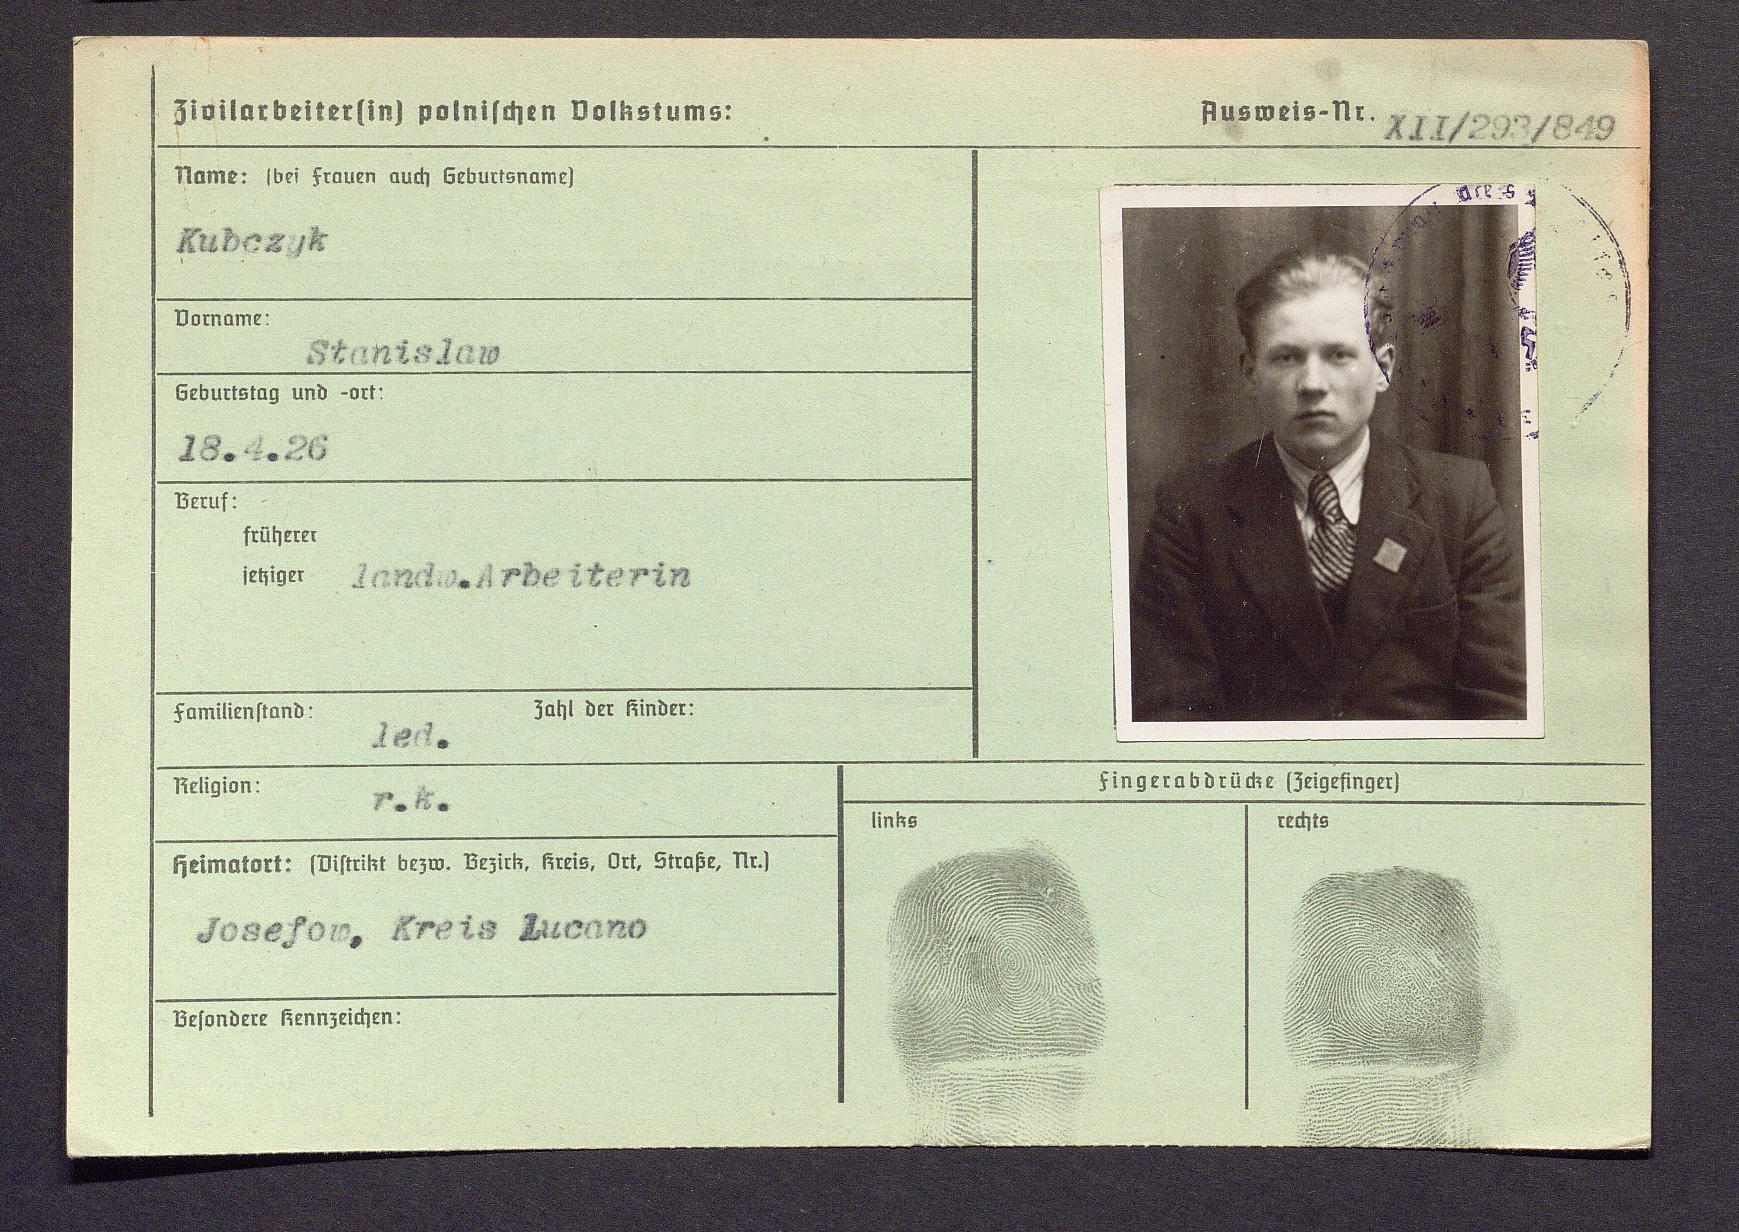 Zivilarbeiter(in) polniſchen Volkstums:
Ausweis-Nr. XII/293/849
Name: (bei Frauen auch Geburtsname)
Kubczyk
Vorname:
Stanislaw
Geburtstag und -ort:
18.4.26
Beruf:
früherer
jetziger landw.Arbeiterin
Familienſtand: led. Zahl der Kinder:
Religion: r.k.
Heimatort: (Diſtrikt bezw. Bezirk, Kreis, Ort, Straße, Nr.)
Josefow, Kreis Lucano
Beſondere Kennzeichen:
Fingerabdrücke (Zeigefinger)
links
rechts